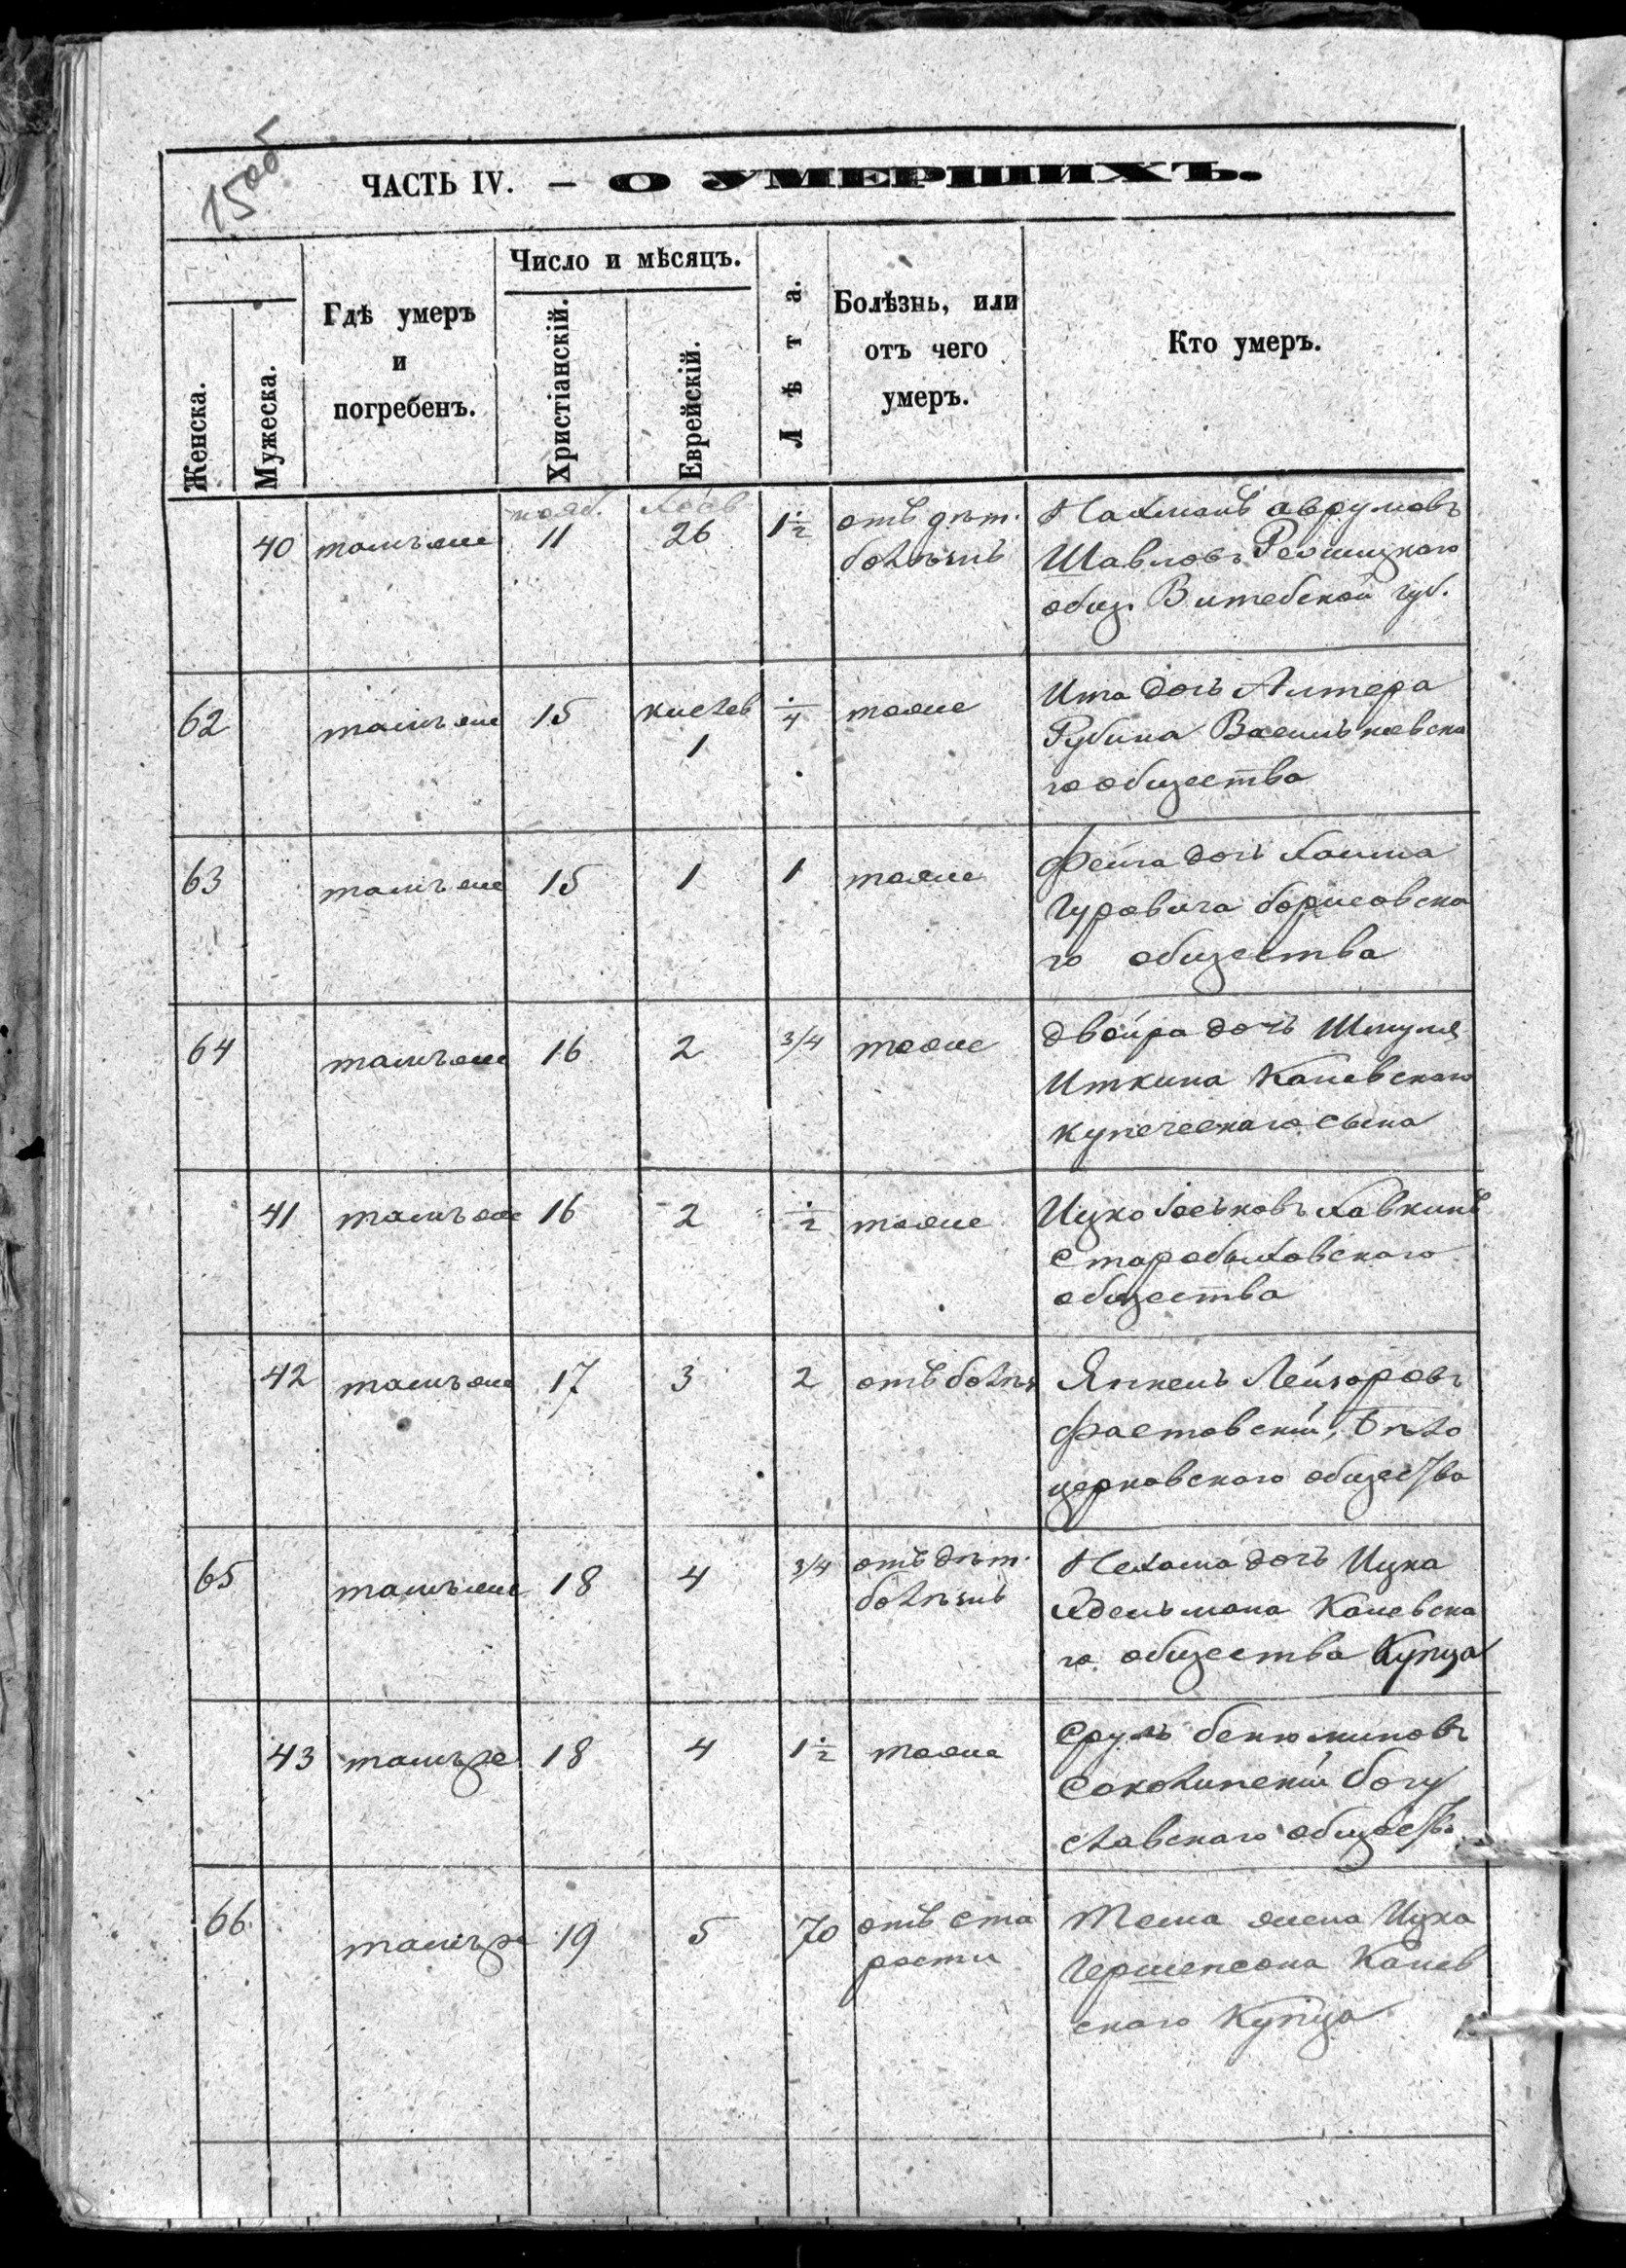 15об
ЧАСТЬ IV. — О УМЕРШИХЪ.
Женска.
Мужеска.
Гдѣ умеръ
и
погребенъ.
Число и мѣсяцъ.
Христіанскій.
Еврейскій.
Лѣта.
Болѣзнь, или
отъ чего
умеръ.
Кто умеръ.
нояб.
40 тамъ же 11 26 1 ½ отъ дѣт. Нахманъ Аврумовъ
болѣзнѣ Шавловъ Рѣжицкаго
общ. Витебской губ.
62 тамъ же 15 кислев ¼ тоже Ита дочь Алтера
1 Рубина Васильковска
го общества
63 тамъ же 15 1 1 тоже Фейга дочь Хаима
Гуровича борисовска
го общества
64 тамъ же 16 2 3/4 тоже Двойра дочь Шмуля
Иткина Каневскаго
купеческаго сына
41 тамъ же 16 2 ½ тоже Ицко Іоськовъ Хавкинъ
Старобыховскаго
общества
42 тамъ же 17 3 2 отъ болѣз Янкель Лейзоровъ
Фастовскій, Бѣло
церковскаго общества
65 тамъ же 18 4 3/4 отъ дѣт. Нехама дочь Ицка
болѣзнѣ Эдельмана Каневска
го общества Купца
43 тамъ же 18 4 1 ½ тоже Сруль бенюминовъ
Соколинскій богу
славскаго общества
66 тамъ же 19 5 70 отъ ста Тема жена Ицка
рости Гершенсона Канев
скаго Купца